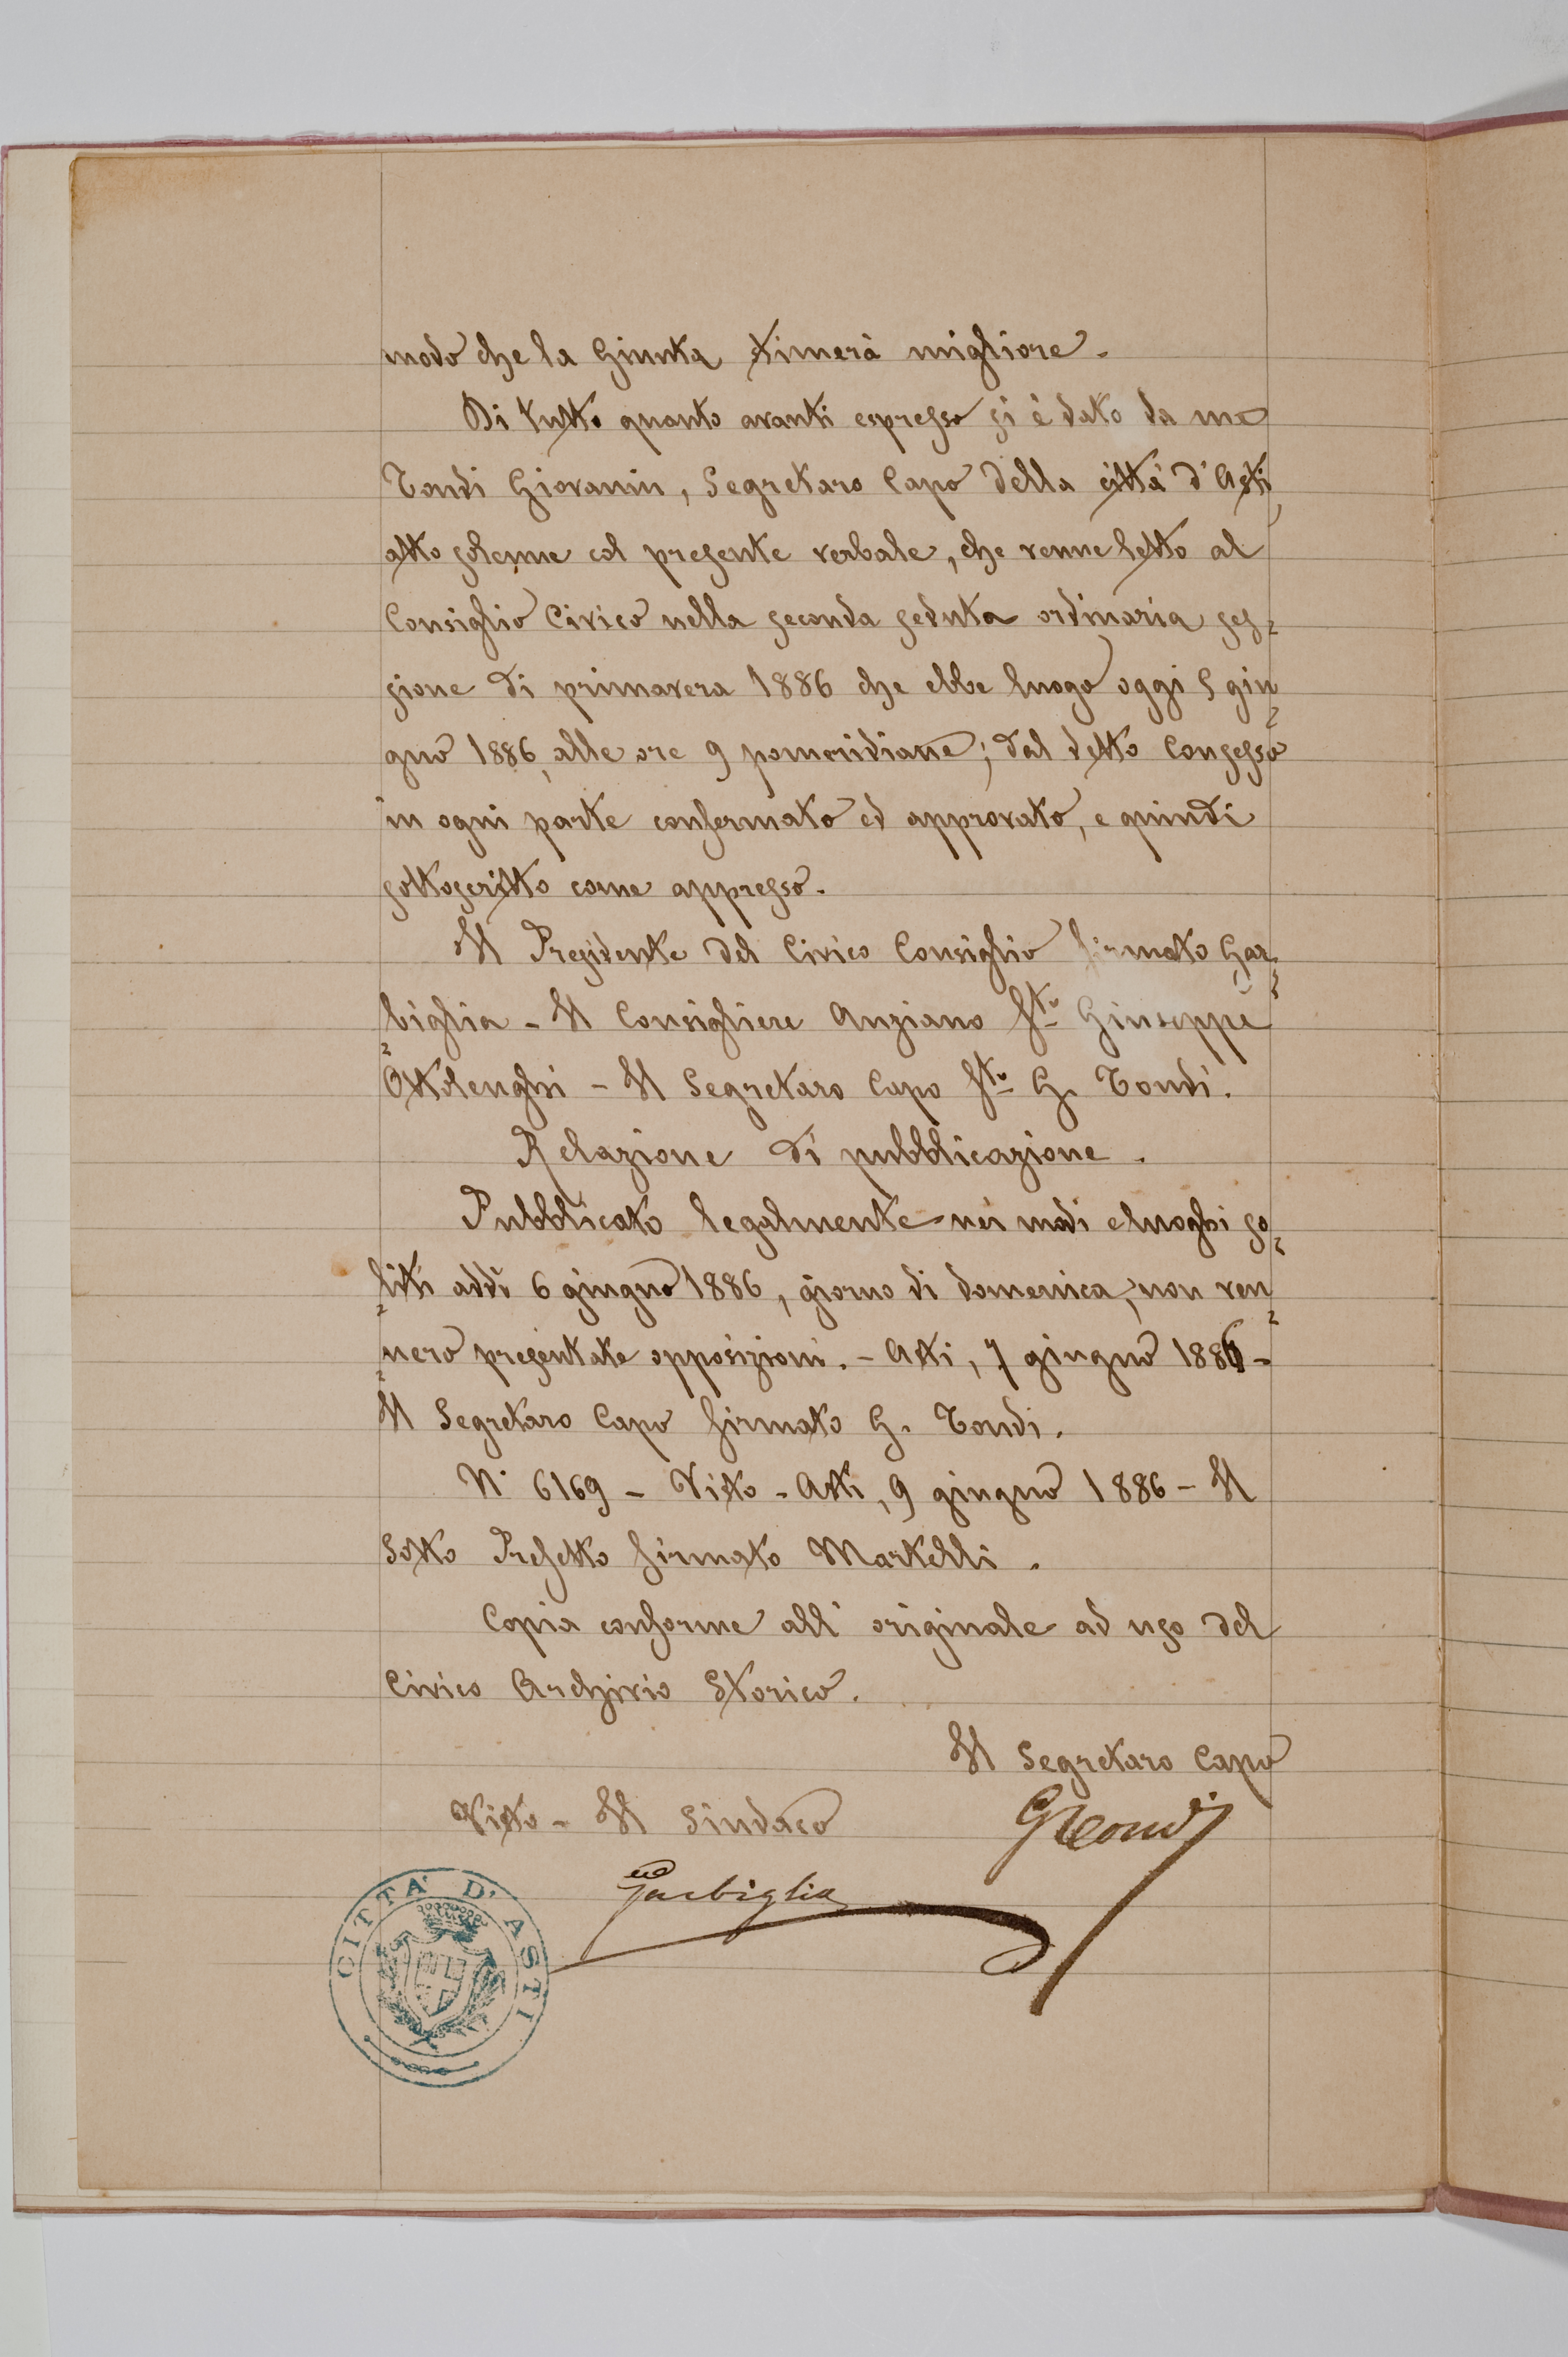 modo che la Giunta stimerà migliore.
Di tutto quanto avanti espresso si è dato da me
Tondi Giovanni, Segretaro Capo della città d'Asti,
atto solenne col presente verbale, che venne letto al
Consiglio Civico nella seconda seduta ordinaria ses=
sione di primavera 1886 che ebbe luogo oggi 5 giu=
gno 1886, alle ore 9 pomeridiane; dal detto Consesso
in ogni parte confermato ed approvato, e quindi
sottoscritto come appresso.
Il Presidente del Civico Consiglio firmato Gar=
biglia - Il Consigliere Anziano fto Giuseppe
Ottolenghi - Il Segretaro Capo fto G. Tondi.
Relazione di pubblicazione.
Pubblicato legalmente nei modi e luoghi so=
liti addì 6 giugno 1886, giorno di domenica, non ven=
nero presentate opposizioni. - Asti, 7 giugno 1886 -
Il Segretaro Capo firmato G. Tondi.
N. 6169 - Visto - Asti, 9 giugno 1886 - Il
Sotto Prefetto firmato Martelli.
Copia conforme all'originale ad uso del
Civico Archivio Storico.
Il Segretaro Capo
GTondi
Visto - Il Sindaco
Garbiglia
CITTA' D'ASTI